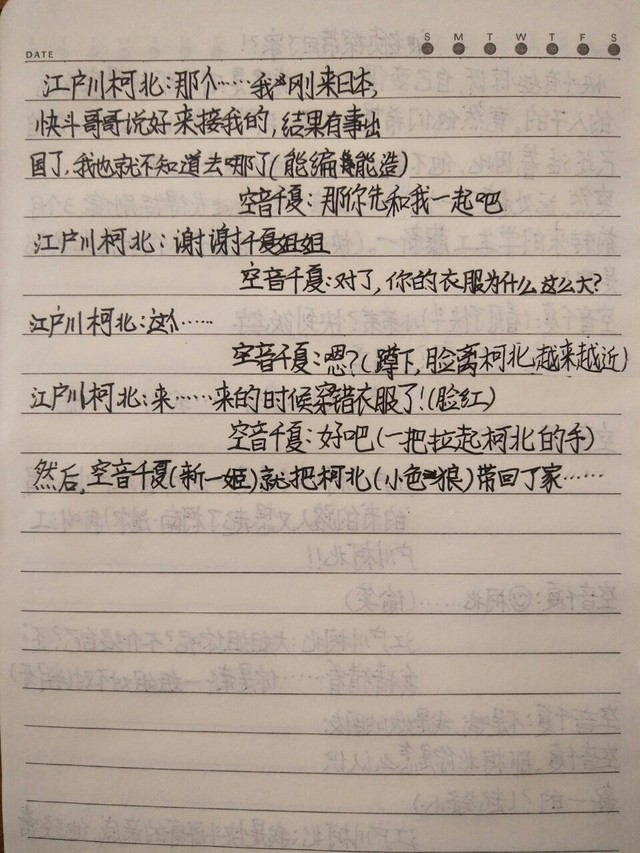 DATE
S M T W T F S
江户川柯北:那个……我刚来日本,
快斗哥哥说好来接我的,结果有事出
国了,我也就不知道去哪了(能编能造)
空音千夏:那你先和我一起吧
江户川柯北:谢谢千夏姐姐
空音千夏:对了,你的衣服为什么这么大?
江户川柯北:这个……
空音千夏:嗯?(蹲下,脸离柯北越来越近)
江户川柯北:来……来的时候穿错衣服了!(脸红)
空音千夏:好吧(一把拉起柯北的手)
然后,空音千夏(新一姬)就把柯北(小色狼)带回了家……